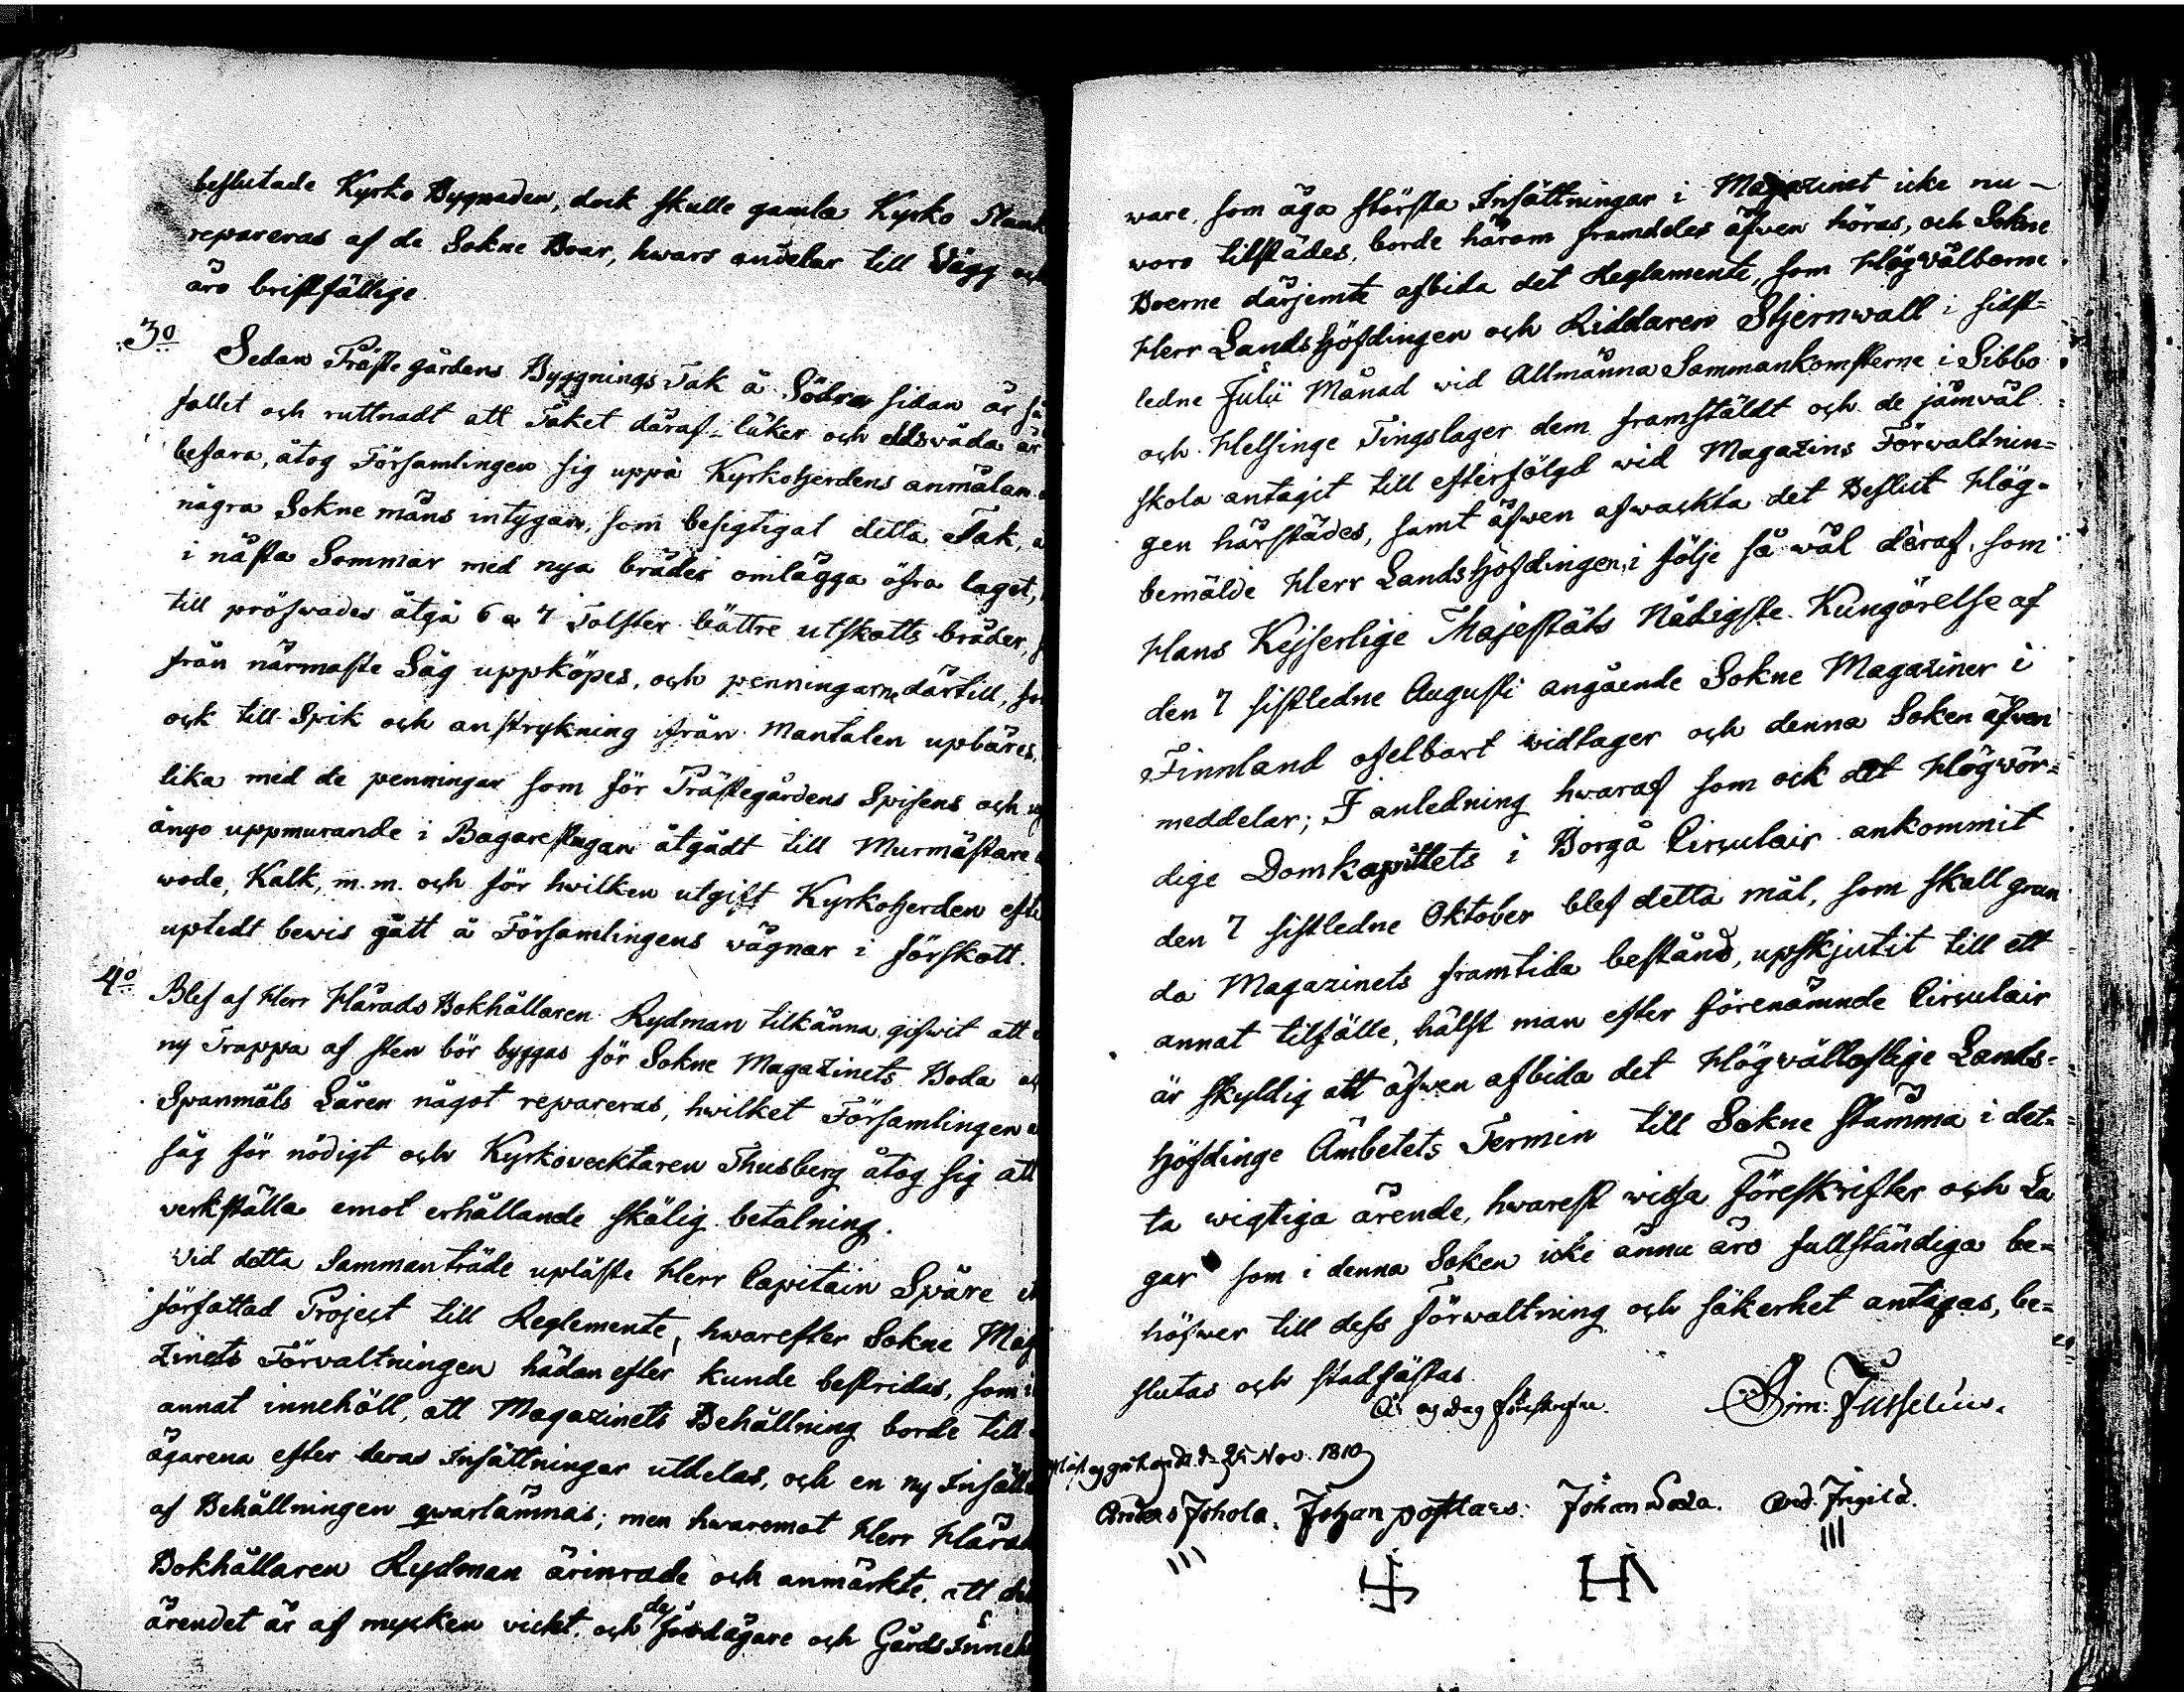 beslutade Kyrko Bygnaden, dock skulle gamla Kyrko Plank
repareras af de Sokne Boar, hwars andelar till Vägg och
äro bristfällige
3o
Sedan Prästegårdens Byggnings Tak å Södra sidan är så
fallet och ruttnadt att Taket däraf läker och eldswåda är
befara, åtog Församlingen sig uppå Kyrkoherdens anmälan
några Sokne mäns intygan, som besigtigat detta Tak,
i nästa Sommar med nya bräder omlägga öfra laget,
till pröfwades åtgå 6 a 7 Tolfter bättre utskotts bräder,
från närmaste Såg uppköpes, och penningarne därtill, som
ock till Spik och anstrykning ifrån Mantalen upbäres,
lika med de penningar som för Prästegårdens Spisens och
ångo uppmurande i Bagarestugan åtgådt till Murmästare
wode, Kalk, m.m. och för hwilken utgift Kyrkoherden efter
uptedt bewis gått å Församlingens vägnar i förskott.
4o
Blef af Herr Härads Bokhållaren Rydman tilkänna gifwit att
ny Trappa af sten bör byggas för Sokne Magazinets Boda och
Spanmåls Låren något repareras, hwilket Församlingen
såg för nödigt och Kyrkovecktaren Thusberg åtog sig att
verkställa emot erhållande skälig betalning.
Vid detta Sammanträde upläste Herr Capitain Spåre et
författad Project till Reglemente, hwarefter Sokne Maga
zinets Förvaltningen hädan efter kunde bestridas, som
annat innehöll, att Magazinets Behållning borde till
ägarena efter deras Insättningar utdelas, och en ny Insätt
af Behållningen qwarlämnas; men hwaremot Herr Härads
Bokhållaren Rydman ärinrade och anmärkte, att det
ärendet är af mycken vickt, och de Jordägare och Gårds Inneha
ware, som äga största Insättningar i Magazinet icke nu
woro tillstädes, borde härom framdeles äfwen höras, och Sokne
Boerne därjemte afbida det Reglamente, som Högvälborne
Herr Landshöfdingen och Riddaren Stjernwall i sidst-
ledne Julii Månad wid Allmänna Sammankomsterne i Sibbo
och Helsinge Tingslager dem framstäldt och de jämväl
skola antagit till efterfölgd wid Magazins Förwaltnin=
gen härstädes, samt äfwen afwackta det Beslut Hög-
bemälde Herr Landshöfdingen, i följe så wäl däraf, som
Hans Kejserlige Majestäts Nådigste Kungörelse af
den 7 sistledne Augusti angående Sokne Magaziner i
Finnland ofelbart widtager och denna Soken äfven
meddelar; I anledning hwaraf som ock att Högwör=
dige Domkapitlets i Borgå Circulair ankommit
den 7 sistledne Oktober blef detta mål, som skall grun
da Magazinets framtida bestånd, upskjutit till ett
annat tilfälle, hälst man efter förenämnde Circulair
är skyldig att äfwen afbida det Högvällofliga Lands-
höfdinge Ämbetets Termin till Sokne Stämma i det=
ta wigtiga ärende, hwarest wissa Föreskrifter och La
gar som i denna Soken icke ännu äro fullständiga be=
höfwer till dess Förwaltning och säkerhet antagas, be=
slutas och stadfästas.
År og Dag föreskrefne.
Upläst og godkändt d. 25 Nov. 1810
Anders Johola. Johan postlars. Johan And.